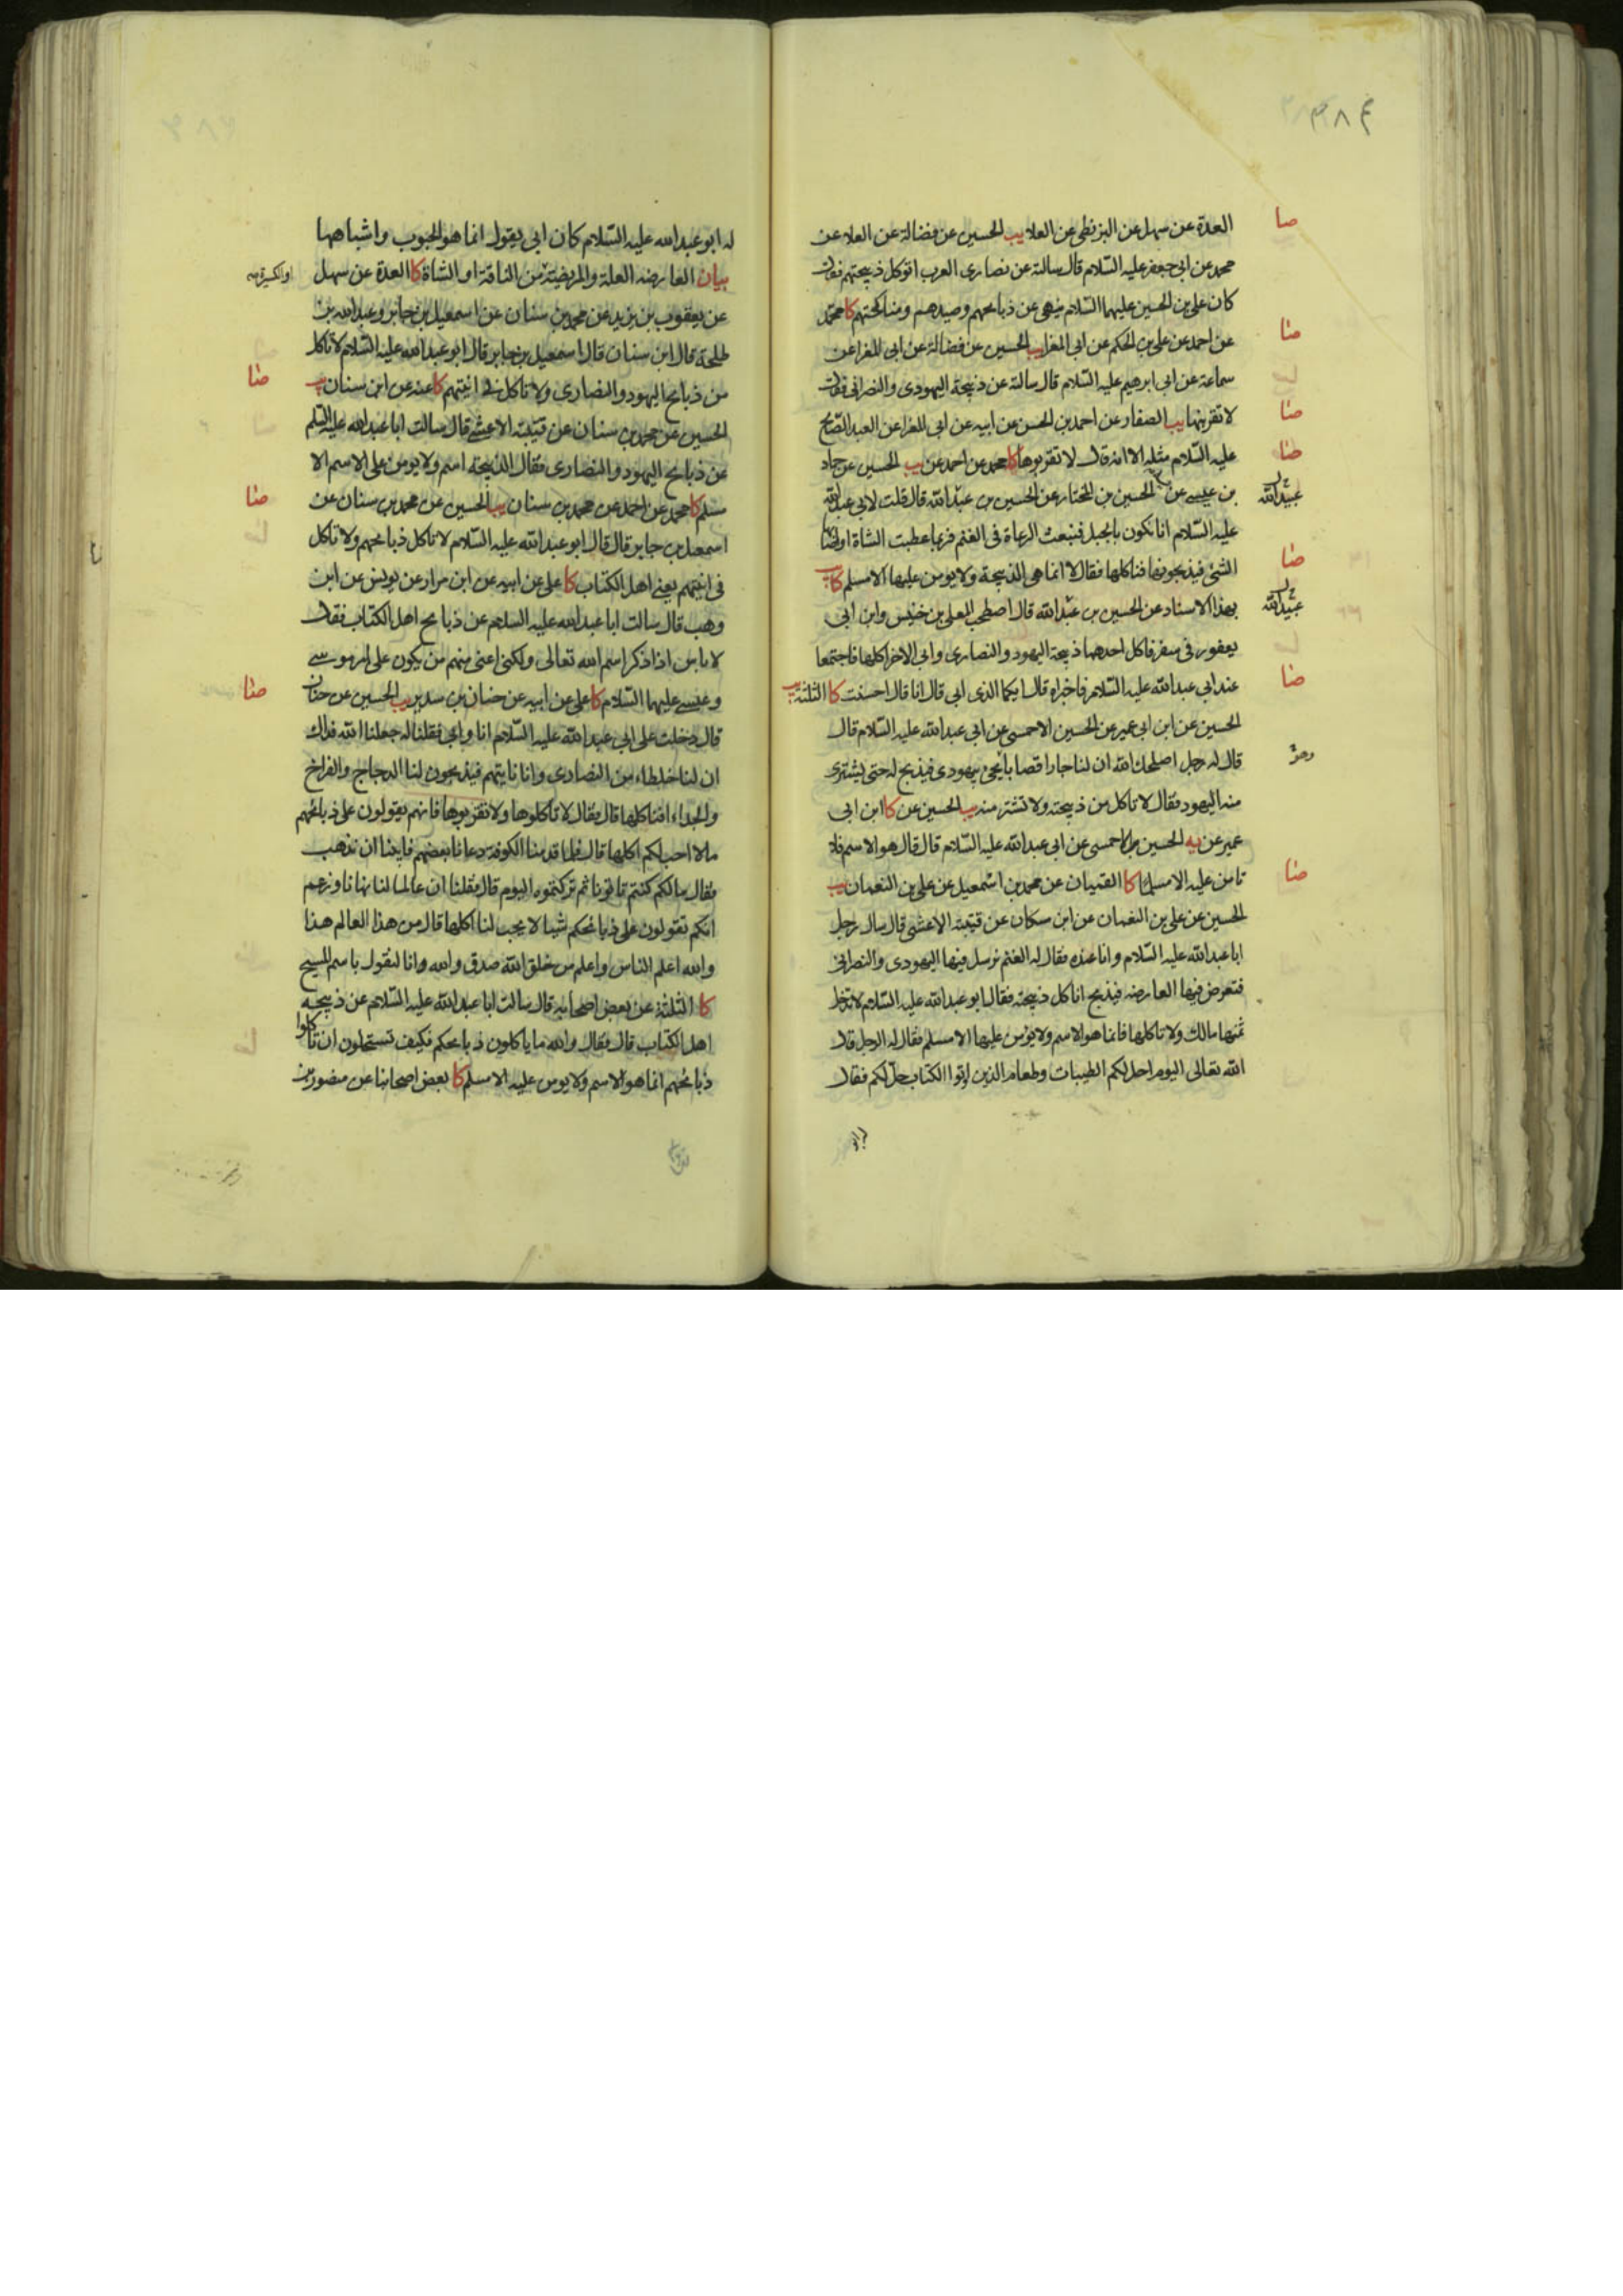 العدة عن سهل عن البزنطي عن العلا يب الحسين عن فضالة عن العلا عن
محمد عن ابي جعفر عليه السلام قال سالته عن نصارى العرب اتوكل ذبيحتهم فقال
كان علي بن الحسين عليهما السلام ينهى عن ذبايحهم وصيدهم ومناكحتهم كا محمد
عن احمد عن علي بن الحكم عن ابي المغرا يب الحسين عن فضالة عن ابي المغرا عن
سماعة عن ابي ابرهيم عليه السلام قال سالته عن ذبيحة اليهودى والنصرانى فقال
لا تقربنها يب الصفار عن احمد بن الحسن عن ابيه عن ابي المغرا عن العبد الصالح
عليه السلام مثله الا انه قال لا تقربوها كا محمد عن احمد عن يب الحسين عن حماد
بن عيسى عن الحسين بن المختار عن الحسين بن عبد الله قال قلت لابي عبد الله
عليه السلام انا نكون بالجبل فنبعث الرعاة فى الغنم فربما عطبت الشاة او اصابها
الشئ فيذبحونها فناكلها فقال لا انما هى الذبيحة ولا يومن عليها الا مسلم كا يب
بهذا الاسناد عن الحسين بن عبد الله قال اصطحب المعلى بن خنيس وابن ابي
يعفور فى سفر فاكل احدهما ذبيحة اليهود والنصارى وابى الاخر اكلها فاجتمعا
عند ابي عبد الله عليه السلام فاخبراه قال ايكما الذى ابى قال انا قال احسنت كا الثلثة يب
الحسين عن ابن ابي عمير عن الحسين الاحمسى عن ابي عبد الله عليه السلام قال
قال له رجل اصلحك الله ان لنا جارا قصابا يجئ بيهودى فيذبح له حتى يشترى
منه اليهود فقال لا تاكل من ذبيحته ولا تشتر منه يب الحسين عن كا ابن ابي
عمير عن يه الحسين الاحمسى عن ابي عبد الله عليه السلام قال قال هو الاسم فلا
تامن عليه الا مسلما كا القميان عن محمد بن اسمعيل عن علي بن النعمان يب
الحسين عن علي بن النعمان عن ابن مسكان عن قتيبة الاعشى قال سال رجل
ابا عبد الله عليه السلام وانا عنده فقال له الغنم نرسل فيها اليهودى والنصرانى
فتعرض فيها العارضه فيذبح اناكل ذبيحته فقال ابو عبد الله عليه السلام لا تدخل
ثمنها مالك ولا تاكلها فانما هو الاسم ولا يؤمن عليها الا مسلم فقال له الرجل قال
الله تعالى اليوم احل لكم الطيبات وطعام الذين اوتوا الكتاب حل لكم فقال
له ابو عبد الله عليه السلام كان ابي يقول انما هو الحبوب واشباهها
بيان العارضه العلة والمريضة من الناقة او الشاة كا العدة عن سهل
عن يعقوب بن يزيد عن محمد بن سنان عن اسمعيل بن جابر وعبد الله بن
طلحة قال ابن سنان قال اسمعيل بن جابر قال ابو عبد الله عليه السلام لا تاكل
من ذبايح اليهود والنصارى ولا تاكل فى انيتهم كا عنه عن ابن سنان يب
الحسين عن محمد بن سنان عن قتيبة الاعشى قال سالت ابا عبد الله عليه السلم
عن ذبايح اليهود والنصارى فقال الذبيحة اسم ولا يومن على الاسم الا
مسلم كا محمد عن احمد عن محمد بن سنان يب الحسين عن محمد بن سنان عن
اسمعيل بن جابر قال قال ابو عبد الله عليه السلام لا تاكل ذبايحهم ولا تاكل
فى انيتهم يعنى اهل الكتاب كا علي عن ابيه عن ابن مرار عن يونس عن ابن
وهب قال سالت ابا عبد الله عليه السلام عن ذبايح اهل الكتاب فقال
لا باس اذا ذكر اسم الله تعالى ولكنى اعنى منهم من يكون على امر موسى
وعيسى عليهما السلام كا علي عن ابيه عن حنان بن سدير يب الحسين عن حنان
قال دخلت على ابي عبد الله عليه السلام انا وابى فقلنا له جعلنا الله فداك
ان لنا خلطاء من النصارى وانا ناتيهم فيذبحون لنا الدجاج والفراخ
والجداء افناكلها قال فقال لا تاكلوها ولا تقربوها فانهم يقولون على ذبائحهم
ما لا احب لكم اكلها قال فلما قدمنا الكوفة دعانا بعضهم فابينا ان نذهب
فقال ما لكم كنتم تاتونا ثم تركتموه اليوم قال فقلنا ان عالما لنا نهانا وزعم
انكم تقولون على ذبائحكم شيئا لا يحب لنا اكلها قال من هذا العالم هذا
والله اعلم الناس واعلم من خلق الله صدق والله وانا لنقول باسم المسيح
كا الثلثة عن بعض اصحابه قال سالت ابا عبد الله عليه السلام عن ذبيحة
اهل الكتاب قال فقال والله ما ياكلون ذبايحكم فكيف تستحلون ان تاكلوا
ذبائحهم انما هو الاسم ولا يومن عليه الا مسلم كا بعض اصحابنا عن منصور بن